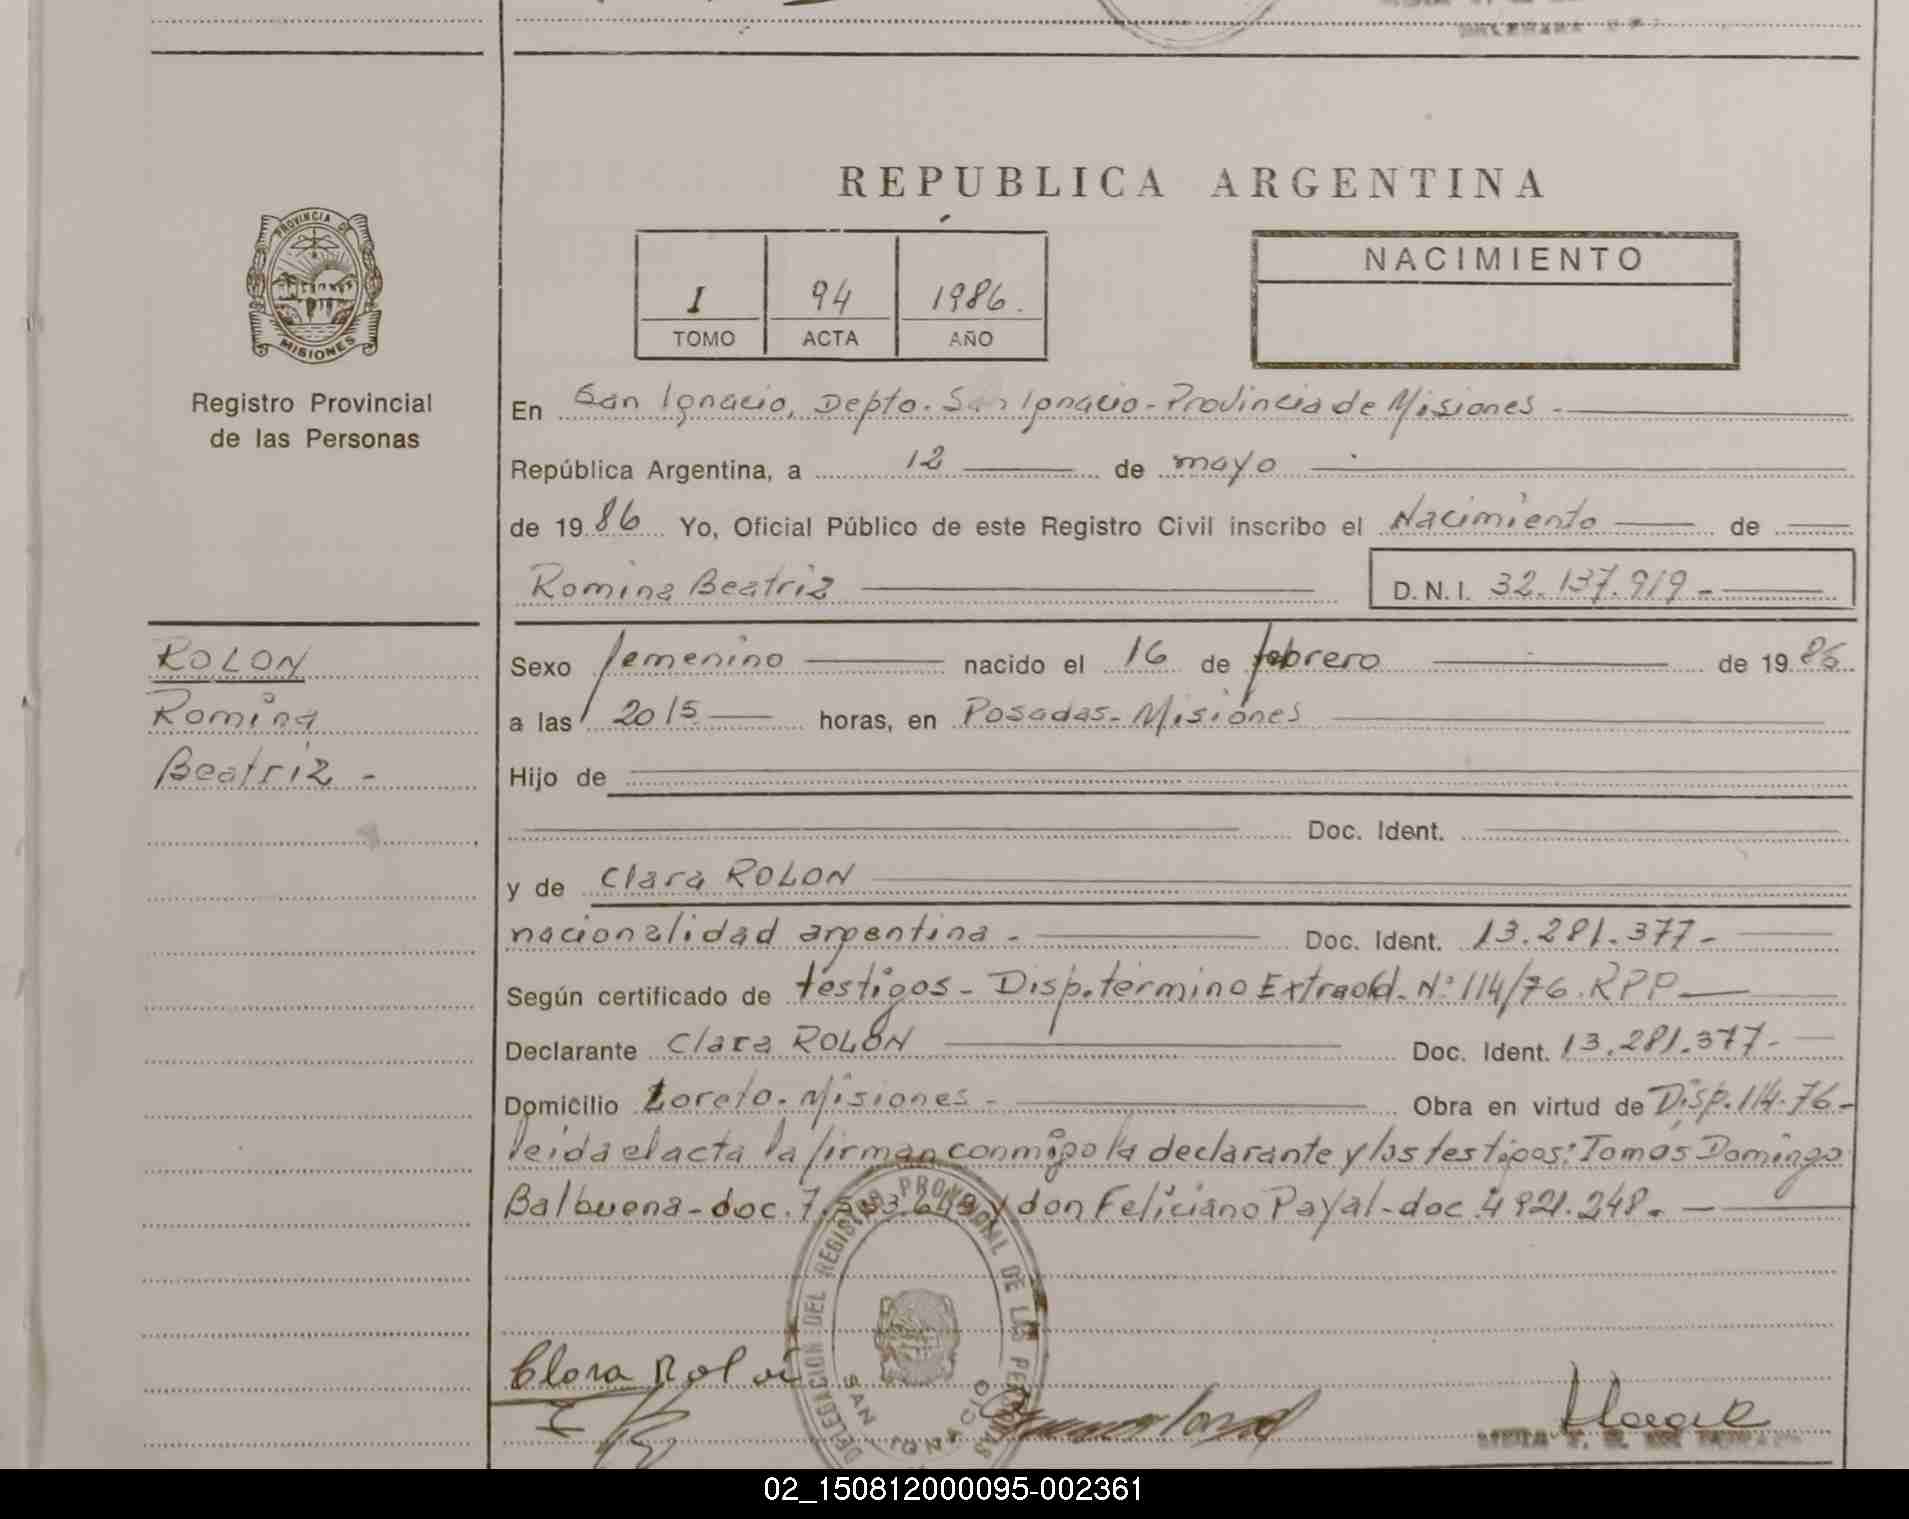 REPUBLICA ARGENTINA
PROVINCIA DE
MISIONES
Registro Provincial
de las Personas
I 94 1986.
TOMO ACTA AÑO
NACIMIENTO
En San Ignacio, Depto. San Ignacio - Provincia de Misiones -
República Argentina, a 12 de mayo
de 19 86 Yo, Oficial Público de este Registro Civil inscribo el Nacimiento de
Romina Beatriz D.N.I. 32.137.919 -
ROLON
Romina
Beatriz -
Sexo femenino nacido el 16 de febrero de 19 86
a las 2015 horas, en Posadas - Misiones
Hijo de
Doc. Ident.
y de Clara ROLON
nacionalidad argentina - Doc. Ident. 13.281.377 -
Según certificado de testigos - Disp. termino Extraord. Nº 114/76. RPP
Declarante Clara ROLON Doc. Ident. 13.281.377 -
Domicilio Loreto - Misiones - Obra en virtud de Disp. 114-76 -
leida el acta la firman conmigo la declarante y los testigos: Tomás Domingo
Balbuena - doc. y don Feliciano Payal - doc. 4 921.248 -
DELEGACION DEL REGISTRO PROVINCIAL DE LAS PERSONAS
SAN IGNACIO
Clara Rolon
02_150812000095-002361